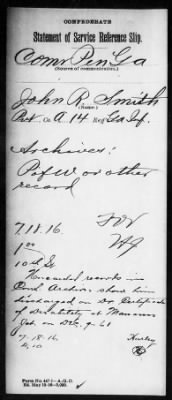 CONFEDERATE
Statement of Service Reference Slip.
Com Pen Ga
(Source of communication.)
John R. Smith
(Name.)
Pvt Co A. 14 Reg Ga Inf.
Archives:
P of W or other
record
7.18.16.
1
10th St
records in
Conf Archives show him
discharged on Dr. Certificate
of Disability at Manassas
on Dec. 9-61
7-18-16
Form No. 447-1—A. G. O.